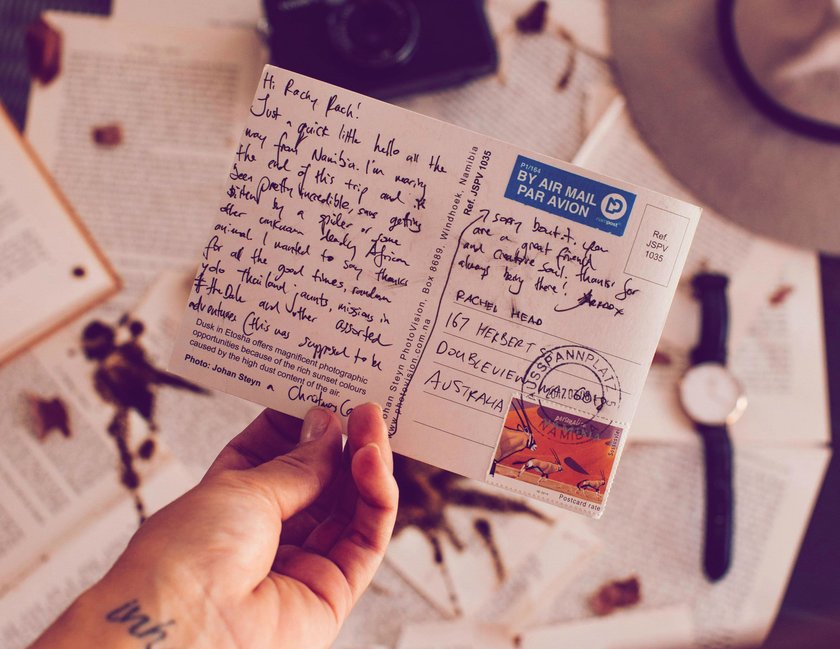 Hi Rachy Rach!
Just a quick little hello all the
way from Namibia. I'm nearing
the end of this trip and it
been pretty incredible, save getting
bitten by a spider or some
other unknown deadly African
animal. I wanted to say thanks
for all the good times, random
yolo Thailand jaunts, missions in
the Dale and other assorted
adventures (this was supposed to be
a Christmas
Dusk in Etosha offers magnificent photographic
opportunities because of the rich sunset colours
caused by the high dust content of the air.
Photo: Johan Steyn
Johan Steyn PhotoVision, Box 8689, Windhoek, Namibia
www.photovision.com.na
Ref. JSPV 1035
sorry bout it. you
are a great friend
and creative soul. thanks for
always being there!
P1/164
BY AIR MAIL
PAR AVION
nampost
Ref.
JSPV
1035
RACHEL HEAD
167 HERBERT
DOUBLEVIEW
AUSTRALIA
AUSSPANNPLATZ
NAMIBIA
Postcard rate
ink